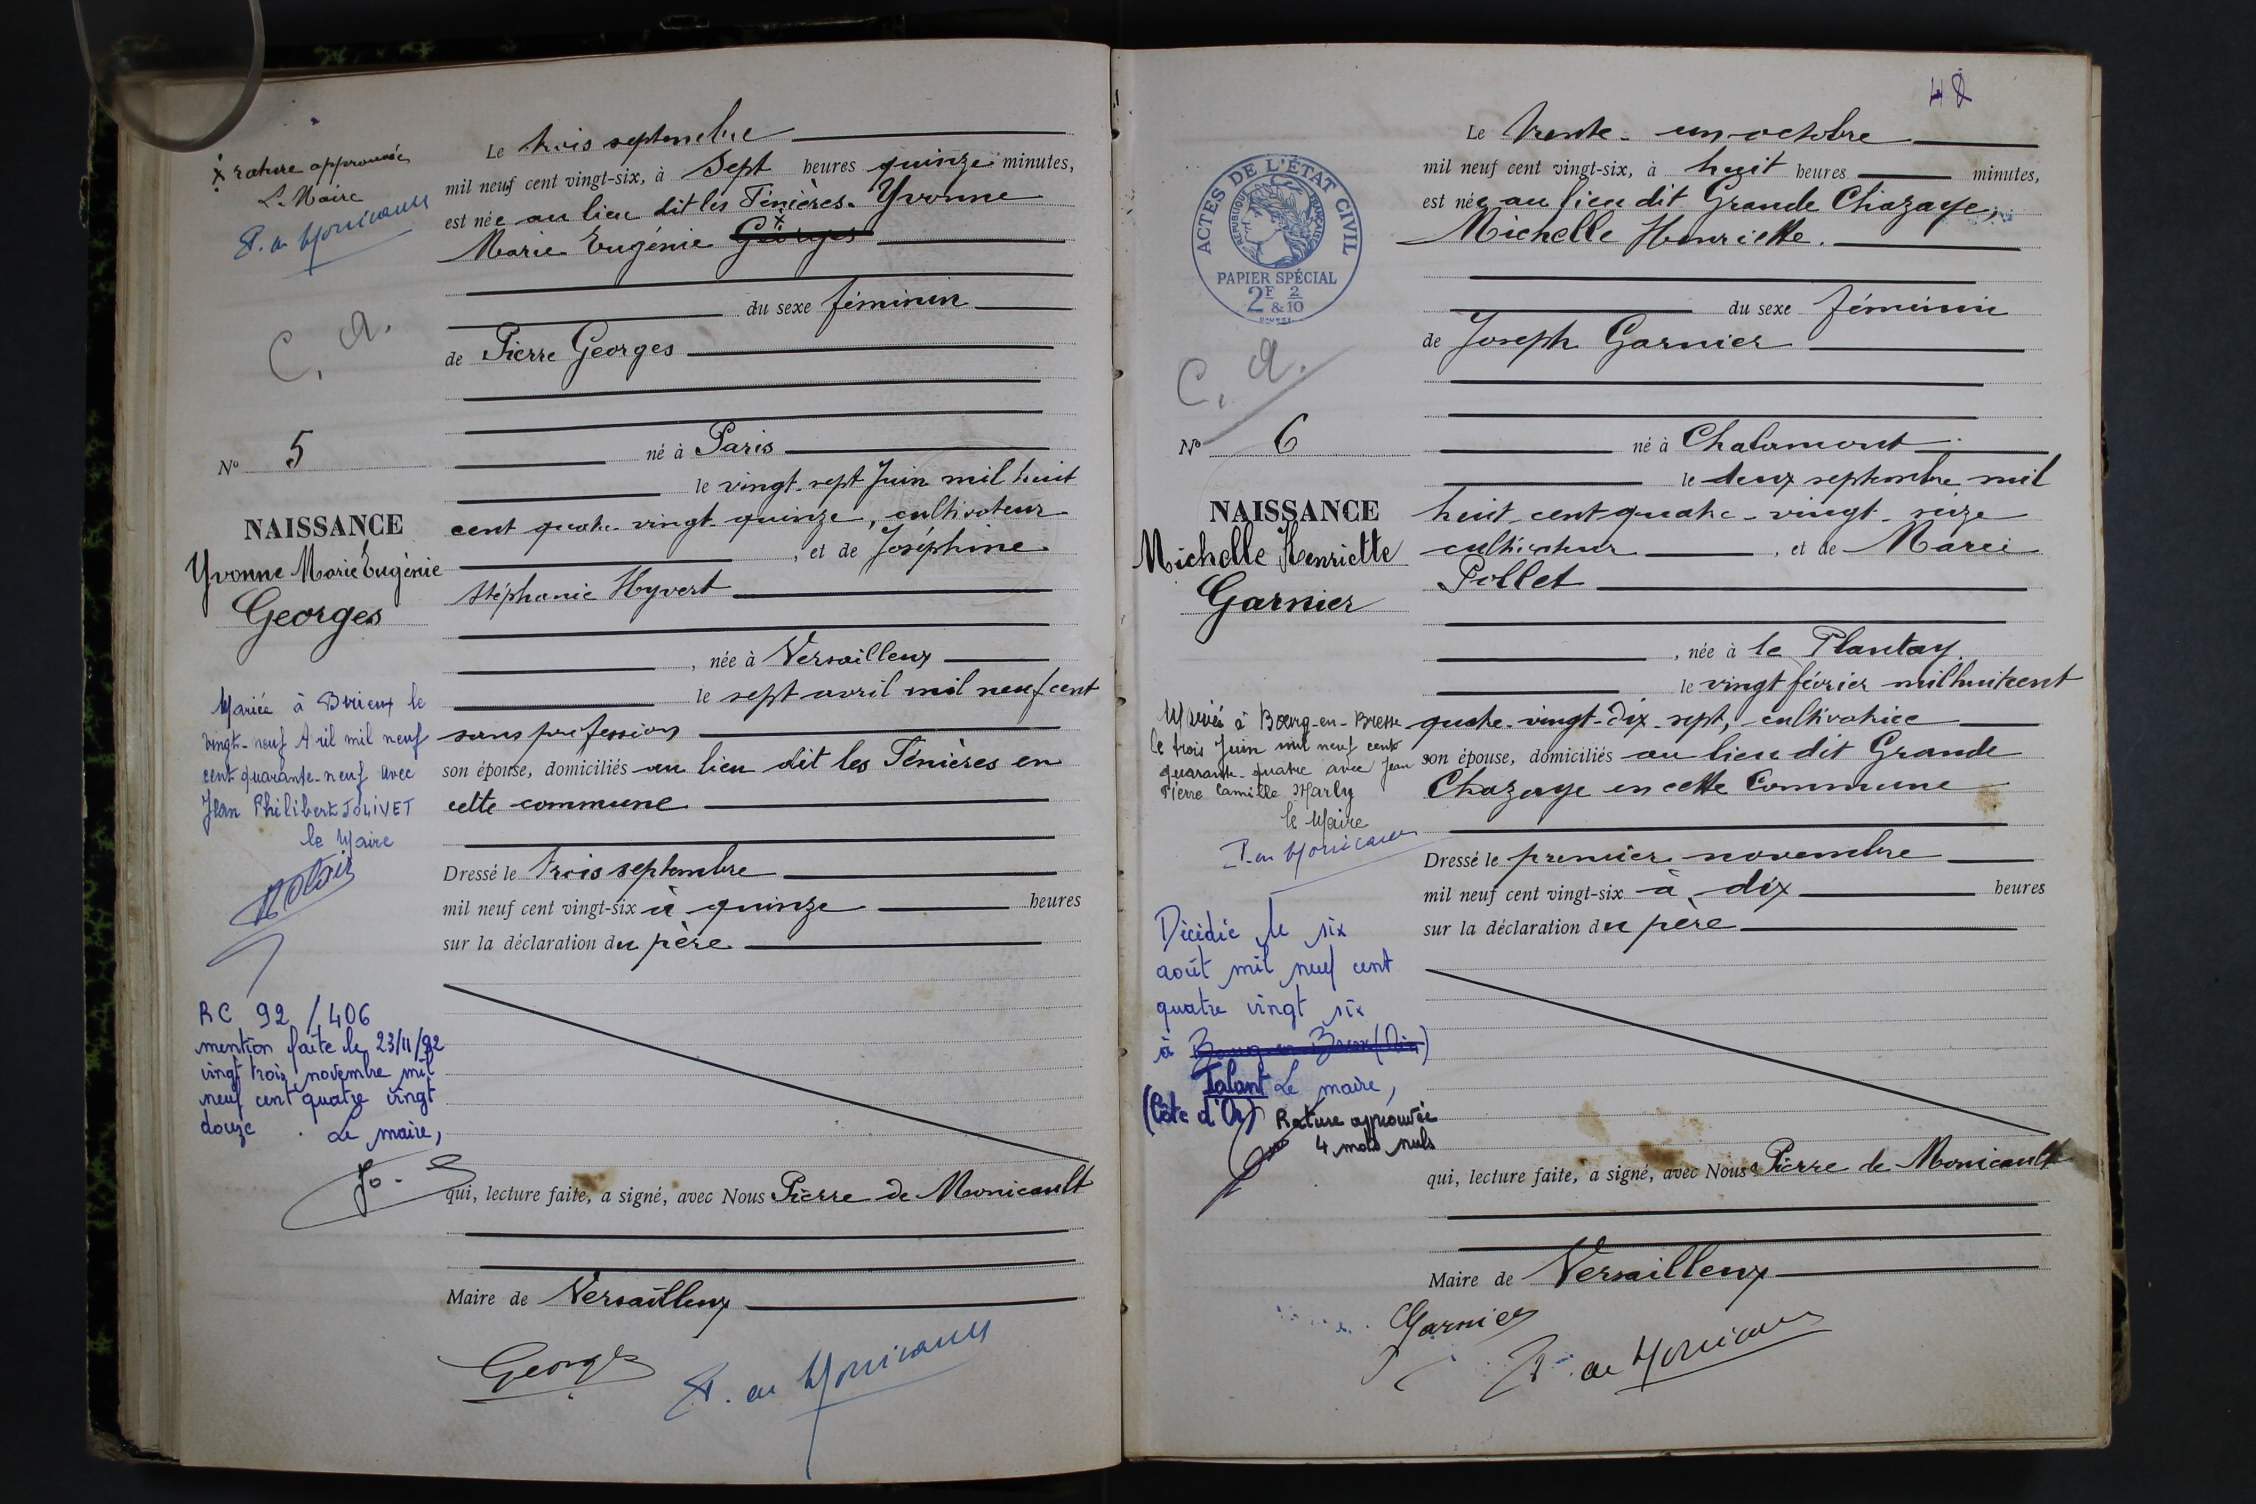 x rature approuvée
Le Maire
P. de Monicault
C. A.
N° 5
NAISSANCE
Yvonne Marie Eugénie
Georges
Mariée à Birieux le
vingt-neuf Avril mil neuf
cent quarante-neuf avec
Jean Philibert JOLIVET
le Maire
RC 92 / 406
mention faite le 23/11/92
vingt trois novembre mil
neuf cent quatre vingt
douze. Le maire,
Le trois septembre
mil neuf cent vingt-six, à sept heures quinze minutes,
est née au lieu dit les Ténières. Yvonne
Marie Eugénie Georges
du sexe féminin
de Pierre Georges
né à Paris
le vingt-sept Juin mil huit
cent quatre-vingt-quinze, cultivateur
, et de Joséphine
Stéphanie Hyvert
, née à Versailleux
le sept avril mil neuf cent
sans profession
son épouse, domiciliés au lieu dit les Ténières en
cette commune
Dressé le trois septembre
mil neuf cent vingt-six à quinze heures
sur la déclaration du père
qui, lecture faite, a signé, avec Nous Pierre de Monicault
Maire de Versailleux
Georges
P. de Monicault
48
ACTES DE L'ÉTAT CIVIL
RÉPUBLIQUE FRANÇAISE
PAPIER SPÉCIAL
2F & 2/10
C. A.
N° 6
NAISSANCE
Michelle Henriette
Garnier
Mariée à Bourg-en-Bresse
le trois Juin mil neuf cent
quarante-quatre avec Jean
Pierre Camille Marly
le Maire
P. de Monicault
Décédée le six
août mil neuf cent
quatre vingt six
à Bourg en Bresse (Ain)
Talant Le maire,
(Côte d'Or) Rature approuvée
4 mots nuls
Le trente-un octobre
mil neuf cent vingt-six, à huit heures minutes,
est née au lieu dit Grande Chazaye,
Michelle Henriette.
du sexe féminin
de Joseph Garnier
né à Chalamont
le deux septembre mil
huit cent quatre-vingt-seize
cultivateur , et de Marie
Pollet
, née à le Plantay
le vingt février mil huit cent
quatre-vingt-dix-sept, cultivatrice
son épouse, domiciliés au lieu dit Grande
Chazaye en cette Commune
Dressé le premier novembre
mil neuf cent vingt-six à dix heures
sur la déclaration du père
qui, lecture faite, a signé, avec Nous Pierre de Monicault
Maire de Versailleux
Garnier
P. de Monicault